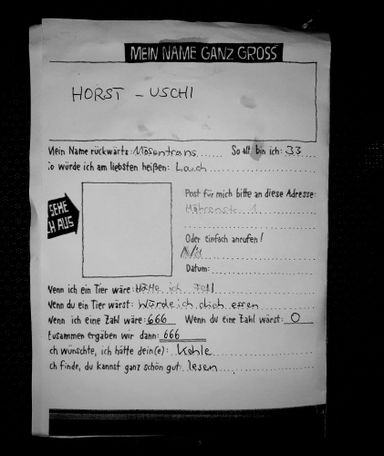 MEIN NAME GANZ GROSS
HORST - USCHI
Mein Name rückwärts: Mösentrans So alt bin ich: 33
So würde ich am liebsten heißen: Lauch
SEHE ICH AUS
Post für mich bitte an diese Adresse:
Oder einfach anrufen!
Datum:
Wenn ich ein Tier wäre: Hätte ich Fell
Wenn du ein Tier wärst: Würde ich dich essen
Wenn ich eine Zahl wäre: 666 Wenn du eine Zahl wärst: 0
Zusammen ergäben wir dann: 666
Ich wünschte, ich hätte dein(e): Kohle
Ich finde, du kannst ganz schön gut: lesen